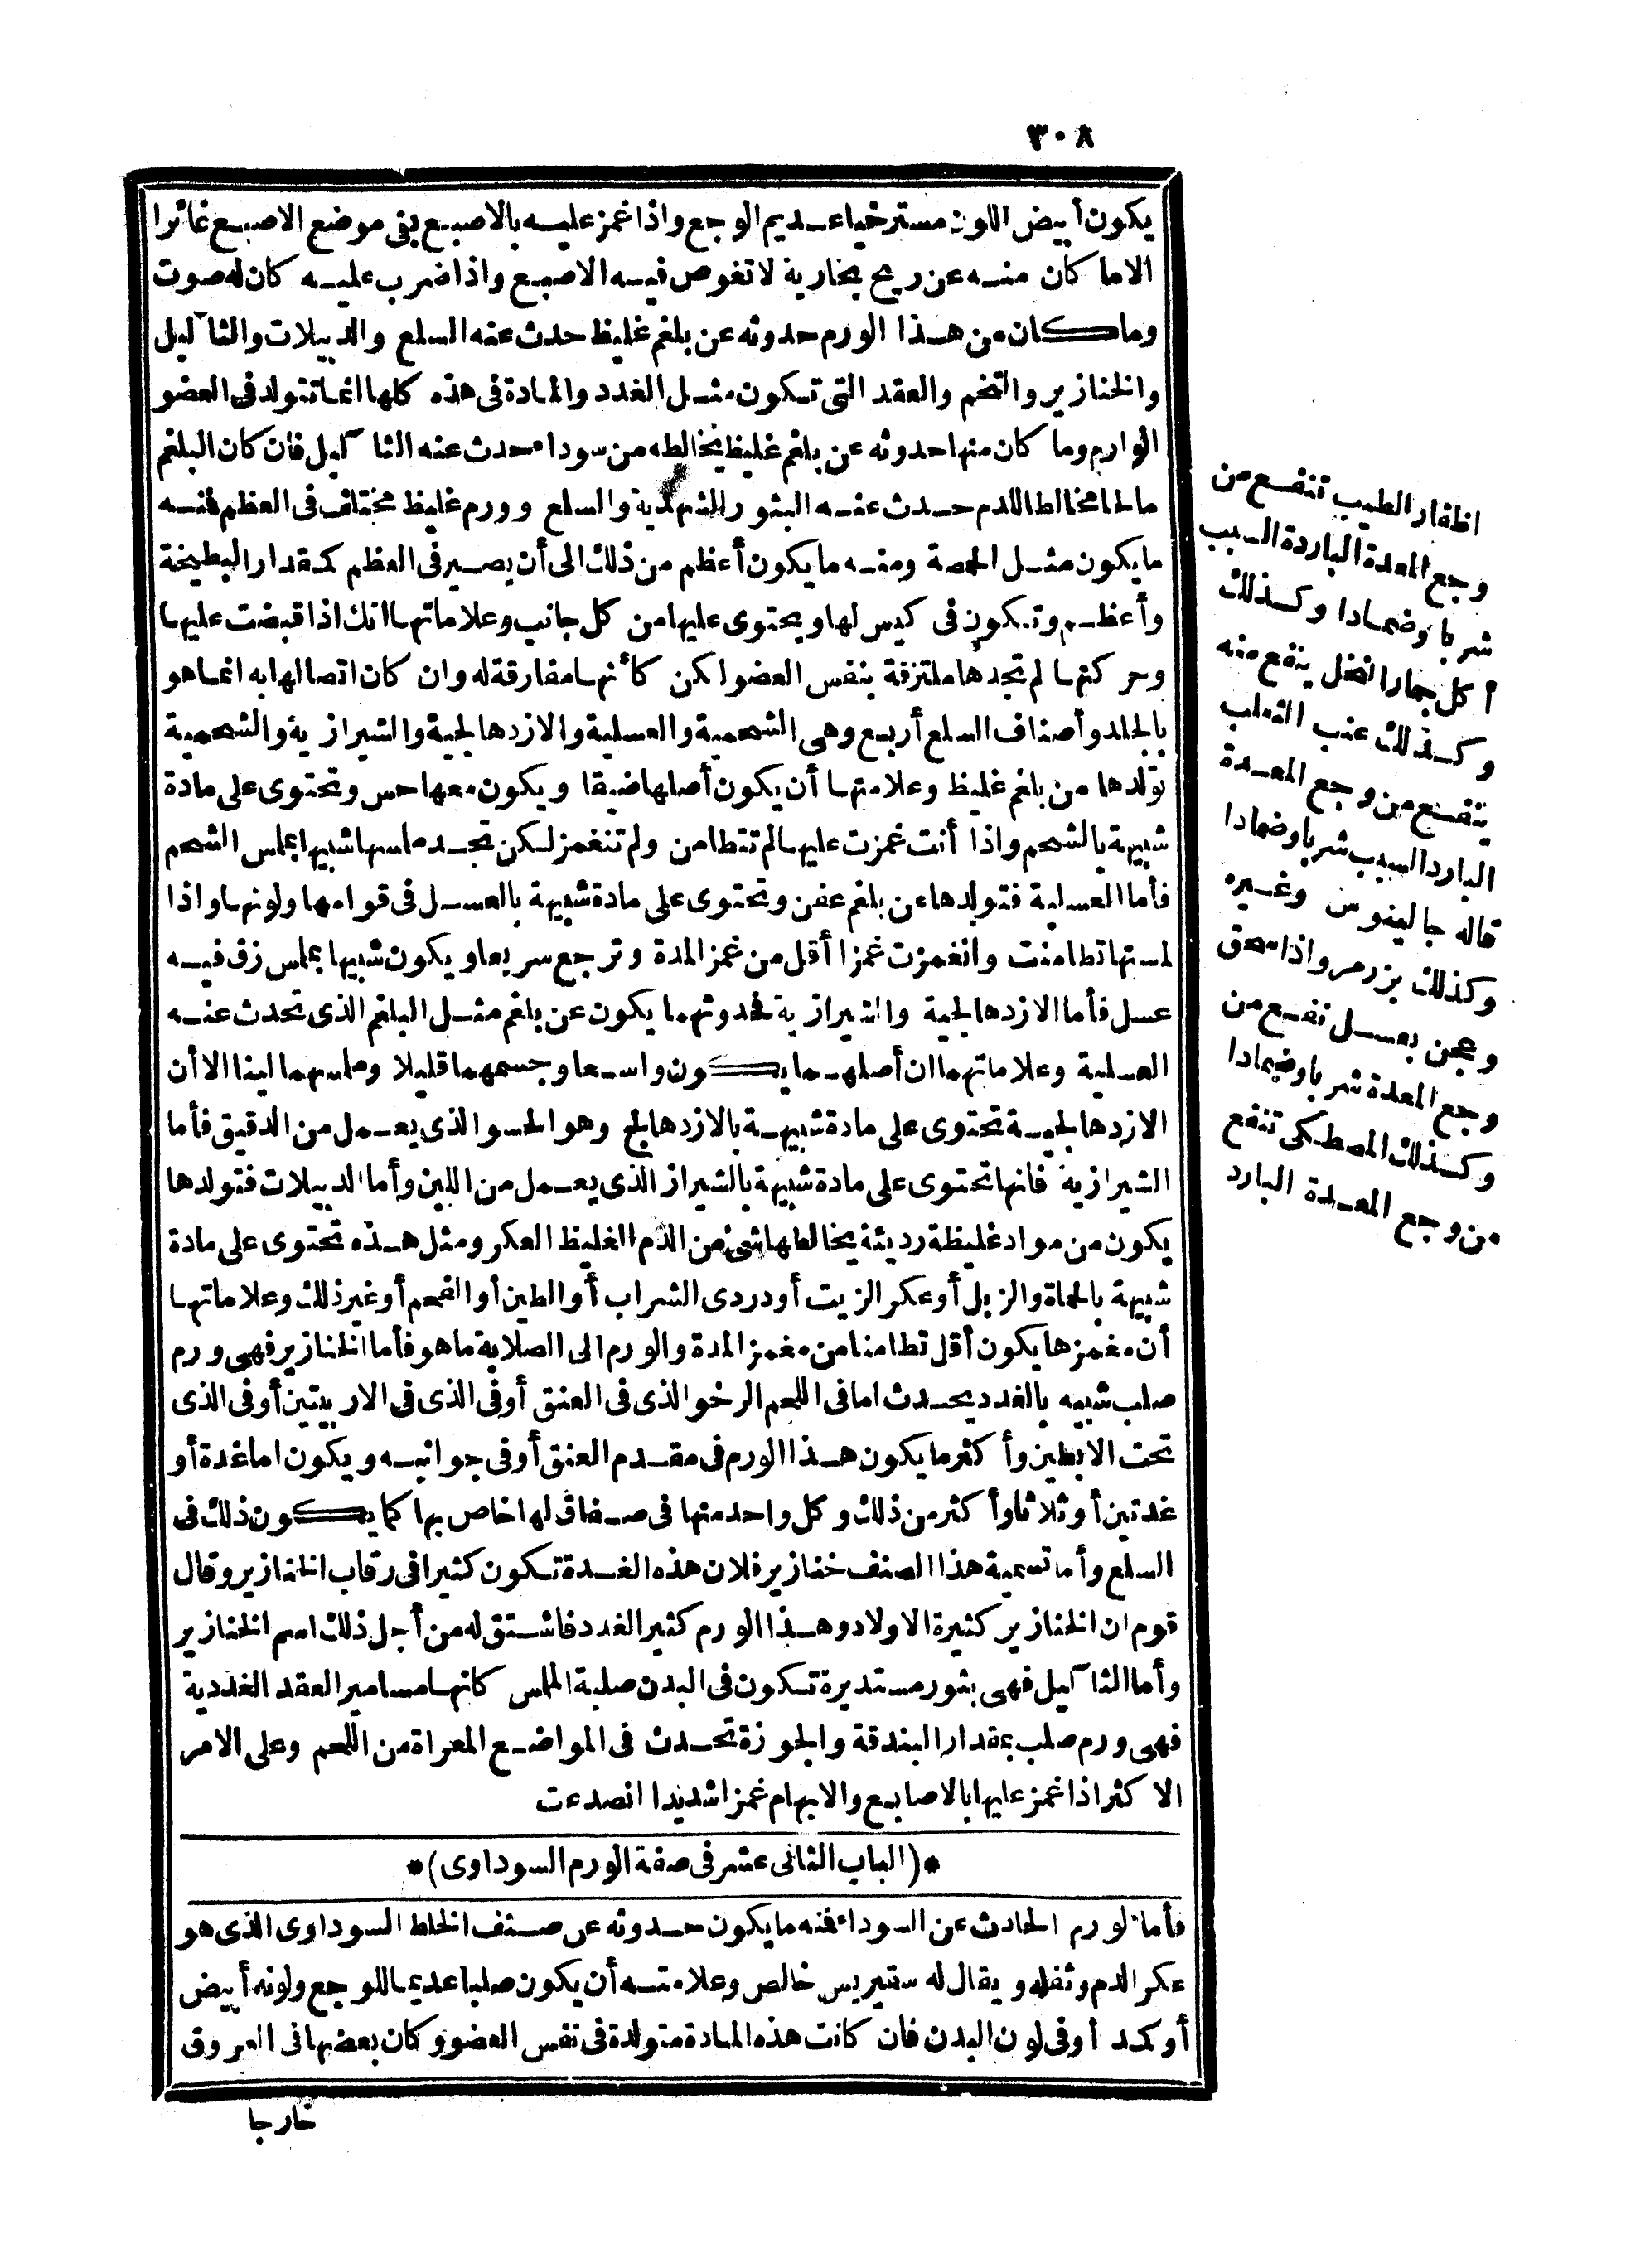 ٣٠٨
يكون أبيض اللون مسترخيا عديم الوجع واذا غمز عليه بالاصبع بقى موضع الاصبع غائرا
الاما كان منه عن ريح بخارية لا تغوص فيه الاصبع واذا ضرب عليه كان له صوت
وما كان من هذا الورم حدوثه عن بلغم غليظ حدث عنه السلع والدبيلات والثآليل
والخنازير والتخم والعقد التى تكون مثل الغدد والمادة فى هذه كلها انما تتولد فى العضو
الوارم وما كان منها حدوثه عن بلغم غليظ يخالطه من سوداء حدث عنه الثآليل فان كان البلغم
مالحا مخالطا للدم حدث عنه البثور الشهدية والسلع وورم غليظ مختلف فى العظم فنه
ما يكون مثل الحمصة ومنه ما يكون أعظم من ذلك الى أن يصير فى العظم كمقدار البطيخة
وأعظم وتكون فى كيس لها ويحتوى عليها من كل جانب وعلاماتها انك اذا قبضت عليها
وحركتها لم تجدها ملتزقة بنفس العضو لكن كأنها مفارقة له وان كان اتصالها به انما هو
بالجلد وأصناف السلع أربع وهى الشحمية والعسلية والازدهالجية والشيرازية والشحمية
تولدها من بلغم غليظ وعلامتها أن يكون أصلها ضيقا ويكون معها حس وتحتوى على مادة
شبيهة بالشحم واذا أنت غمزت عليها لم تتطامن ولم تنغمز لكن تجد ملمسها شبيها بملس الشحم
فأما العسلية فتولدها عن بلغم عفن وتحتوى على مادة شبيهة بالعسل فى قوامها ولونها واذا
لمستها تطامنت وانغمزت غمزا أقل من غمز المدة وترجع سريعا ويكون شبيها بملس زق فيه
عسل فأما الازدهالجية والشيرازية فحدوثهما يكون عن بلغم مثل البلغم الذى تحدث عنه
العسلية وعلاماتهما ان أصلهما يكون واسعا وجسمهما قليلا وملمسهما لينا الا أن
الازدهالجية تحتوى على مادة شبيهة بالازدهالج وهو الحسو الذى يعمل من الدقيق فأما
الشيرازية فانها تحتوى على مادة شبيهة بالشيراز الذى يعمل من اللبن وأما الدبيلات فتولدها
يكون من مواد غليظة رديئة يخالطها شئ من الدم الغليظ العكر ومثل هذه تحتوى على مادة
شبيهة بالحماة والزبل أو عكر الزيت أو دردى الشراب أو الطين أو الفحم أو غير ذلك وعلاماتها
أن مغمزها يكون أقل تطامنا من مغمز المدة والورم الى الصلابة ما هو فأما الخنازير فهى ورم
صلب شبيه بالغدد يحدث اما فى اللحم الرخو الذى فى العنق أو فى الذى فى الاربيتين أو فى الذى
تحت الابطين وأكثر ما يكون هذا الورم فى مقدم العنق أو فى جوانبه ويكون اما غدة أو
غدتين أو ثلاثا وأكثر من ذلك وكل واحد منها فى صفاق لها خاص بها كما يكون ذلك فى
السلع وأما تسمية هذا الصنف خنازير فلان هذه الغدة تكون كثيرا فى رقاب الخنازير وقال
قوم ان الخنازير كثيرة الاولاد وهذا الورم كثير الغدد فاشتق له من أجل ذلك اسم الخنازير
وأما الثآليل فهى بثور مستديرة تكون فى البدن صلبة الملمس كانها مسامير العقد الغددية
فهى ورم صلب بمقدار البندقة والجوزة تحدث فى المواضع المعراة من اللحم وعلى الامر
الاكثر اذا غمز عليها بالاصابع والابهام غمزا شديدا انصدعت
*(الباب الثانى عشر فى صفة الورم السوداوى)*
فأما الورم الحادث عن السوداء فمنه ما يكون حدوثه عن صنف الخلط السوداوى الذى هو
عكر الدم وثفله ويقال له سقيريس خالص وعلامته أن يكون صلبا عديما للوجع ولونه أبيض
أو كمد أو فى لون البدن فان كانت هذه المادة متولدة فى نفس العضو وكان بعضها فى العروق
خارجا
اظفار الطيب تنفع من
وجع المعدة الباردة السبب
شربا وضمادا وكذلك
أكل جمار النخل ينفع منه
وكذلك عنب الثعلب
ينفع من وجع المعدة
البارد السبب شربا وضمادا
قاله جالينوس وغيره
وكذلك بزر مر واذا سحق
وعجن بعسل نفع من
وجع المعدة شربا وضمادا
وكذلك المصطكى تنفع
من وجع المعدة البارد